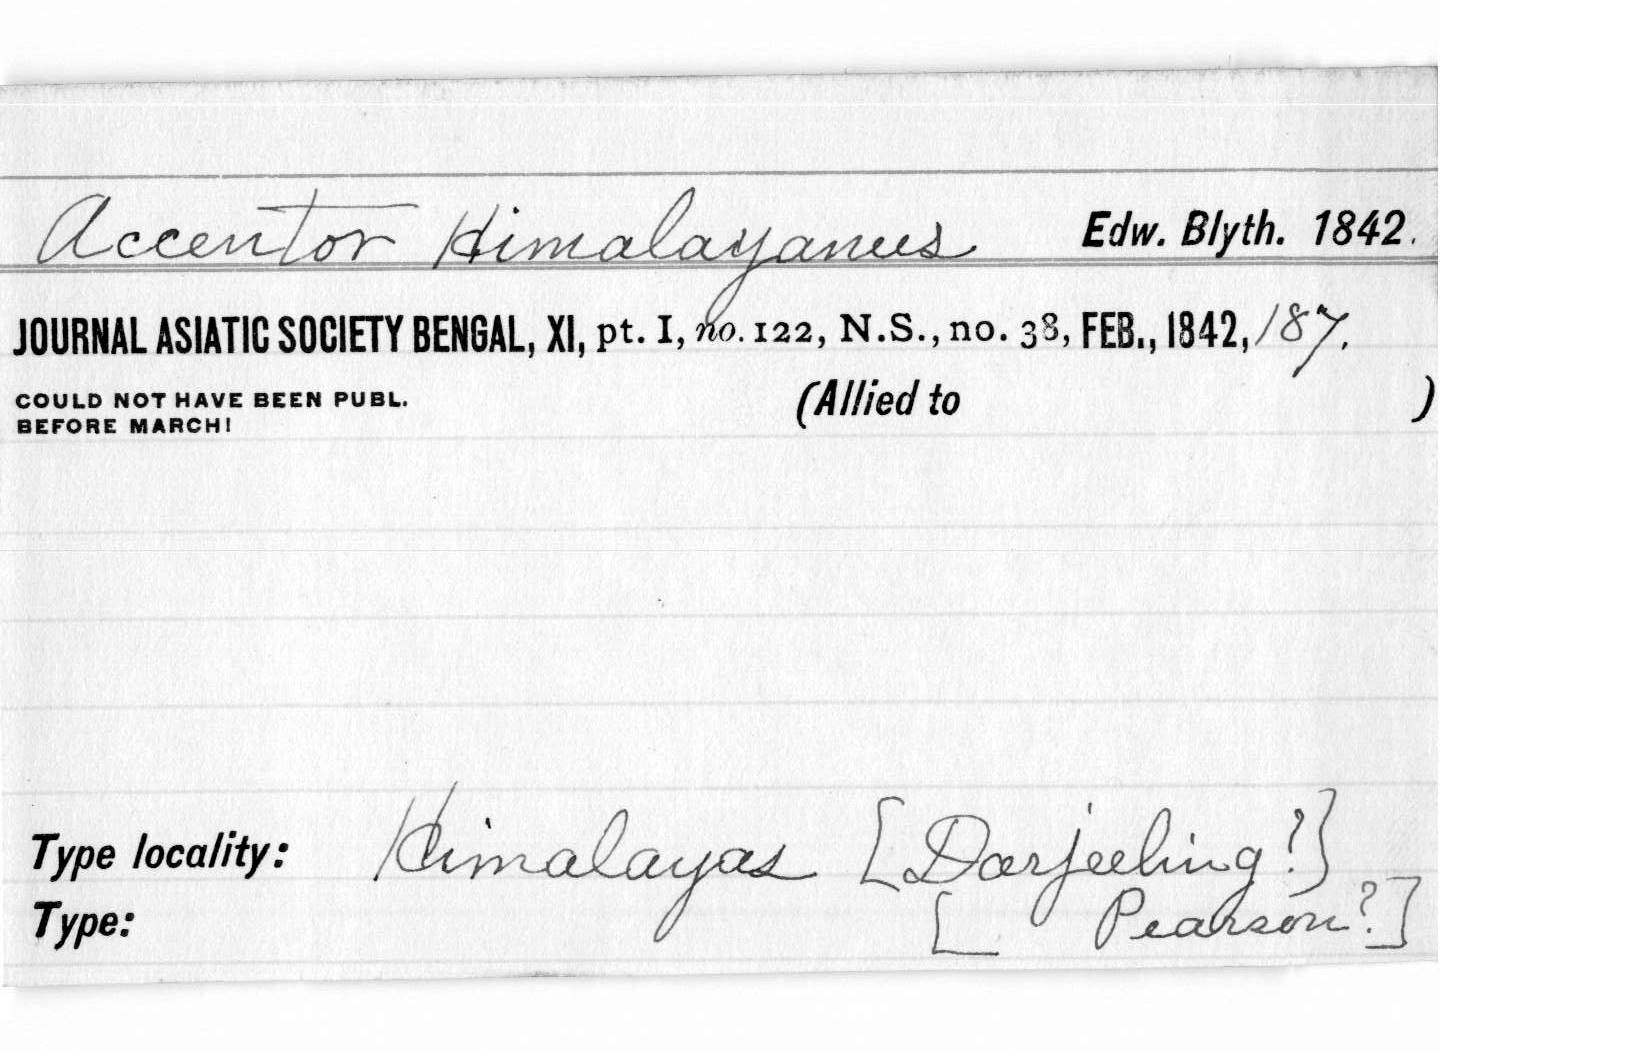 Accentor Himalayanus Edw. Blyth. 1842.
JOURNAL ASIATIC SOCIETY BENGAL, XI, pt. I, no. 122, N.S., no. 38, FEB., 1842, 187.
COULD NOT HAVE BEEN PUBL. (Allied to )
BEFORE MARCH!
Type locality: Himalayas [Darjeeling?]
Type: [ Pearson?]